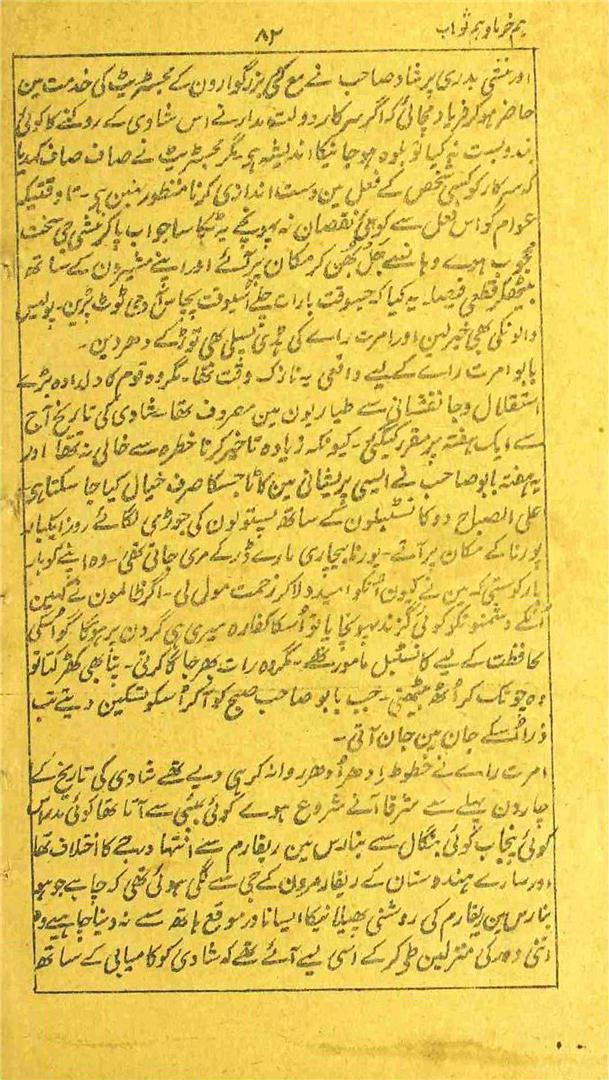 ہم خرما و ہم ثواب
۸۲
اور منشی بدری پرشاد صاحب نے مع کئی بزرگوارون کے مجسٹریٹ کی خدمت مین
حاضر ہوکر فریاد مچائی کہ اگر سرکار دولت مدار نے اس شادی کے روکنے کا کوئی
بندوبست نہ کیا تو بلوہ ہو جانیکا اندیشہ ہی۔ مگر مجسٹریٹ نے صاف صاف کہدیا
کہ سرکار کو کسی شخص کے فعل مین دست اندازی کرنا منظور نہین ہی۔ تا وقتیکہ
عوام کو اس فعل سے کوئی نقصان نہ پہونچے یہ ٹکا سا جواب پاکر منشی جی سخت
محجوب ہوے وہانسے جل بھُن کر مکان پر آئے اور اپنے مشیرون کے ساتھ
بیٹھکر قطعی فیصلہ یہ کیا کہ جسوقت بارات چلے اُسیوقت پچاس آدمی ٹوٹ پڑین۔ پولیس
والونکی بھی خبر لین اور امرت راے کی ہڈی پسلی بھی توڑ کے دھر دین۔
بابو امرت راے کے لیے واقعی یہ نازک وقت تھا۔ مگر وہ قوم کا دلدادہ بڑے
استقلال و جانفشانی سے طیاریون مین مصروف تھا۔ شادی کی تاریخ آج
سے ایک ہفتہ پر مقرر کیگئی۔ کیونکہ زیادہ تاخیر کرنا خطرہ سے خالی نہ تھا اور
یہ ہفتہ بابو صاحب نے ایسی پریشانی مین کاٹا جسکا صرف خیال کیا جا سکتا ہی۔
علی الصباح دو کانسٹبلون کے ساتھ پستولون کی جوڑی لگائے روز ایکبار
پورنا کے مکان پر آتے۔ پورنا بیچاری مارے ڈر کے مری جاتی تھی۔ وہ اپنے کو بار
بار کوستی کہ مین نے کیون اُنکو امید دلا کر زحمت مول لی۔ اگر ظالمون نے کہین
اُنکے دشمنونکو کوئی گزند پہونچایا تو اُسکا کفارہ میری ہی گردن پر ہوگا گو اُسکی
محافظت کے لیے کانسٹبل مامور تھے۔ مگر وہ رات بھر جاگا کرتی۔ پتا بھی کھڑکتا تو
وہ چونک کر اُٹھ بیٹھتی۔ جب بابو صاحب صبح کو آکر اُسکو تسکین دیتے تب
ذرا اُسکے جان مین جان آتی۔
امرت راے نے خطوط ادھر اُدھر روانہ کر ہی دیے تھے شادی کی تاریخ کے
چار دن پہلے سے شرفا آنے شروع ہوے کوئی بمبئی سے آتا تھا کوئی مدراس
کوئی پنجاب کوئی بنگال سے بنارس مین ریفارم سے انتہا درجے کا اختلاف تھا
اور سارے ہندوستان کے ریفارمرون کے جی سے لگی ہوئی تھی کہ چاہے جو ہو
بنارس مین ریفارم کی روشنی پھیلانیکا ایسا نادر موقع ہاتھ سے نہ دینا چاہیے وہ
اتنی دور کی منزلین طی کر کے اسی لیے آئے تھے کہ شادی کو کامیابی کے ساتھ